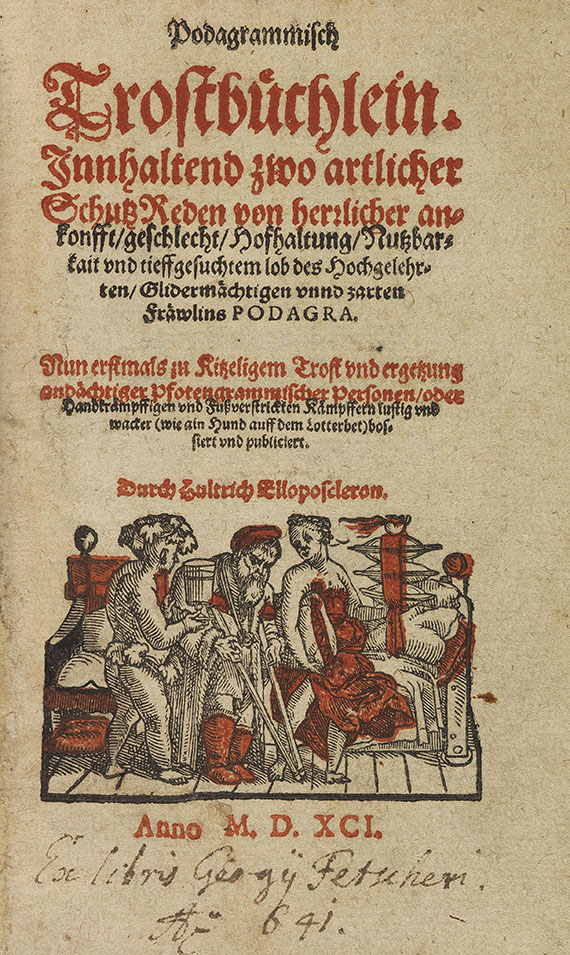 Podagrammisch
Trostbüchlein.
Innhaltend zwo artlicher
Schutz Reden von herrlicher an-
konfft/geschlecht/Hofhaltung/Nutzbar-
kait vnd tieffgesuchtem lob des Hochgelehr-
ten/Glidermächtigen vnnd zarten
Fräwlins PODAGRA.
Nun erstmals zu Kitzeligem Trost vnd ergetzung
andächtiger Pfotengrammischer Personen/oder
Handkrämpffigen vnd Fußverstrickten Kämpffern lustig vnd
wacker (wie ain Hund auff dem Lotterbet) bos-
siert vnd publiciert.
Durch Hultrich Elloposcleron.
Anno M. D. XCI.
Ex libris Georgÿ Fetscheri.
Aº 641.